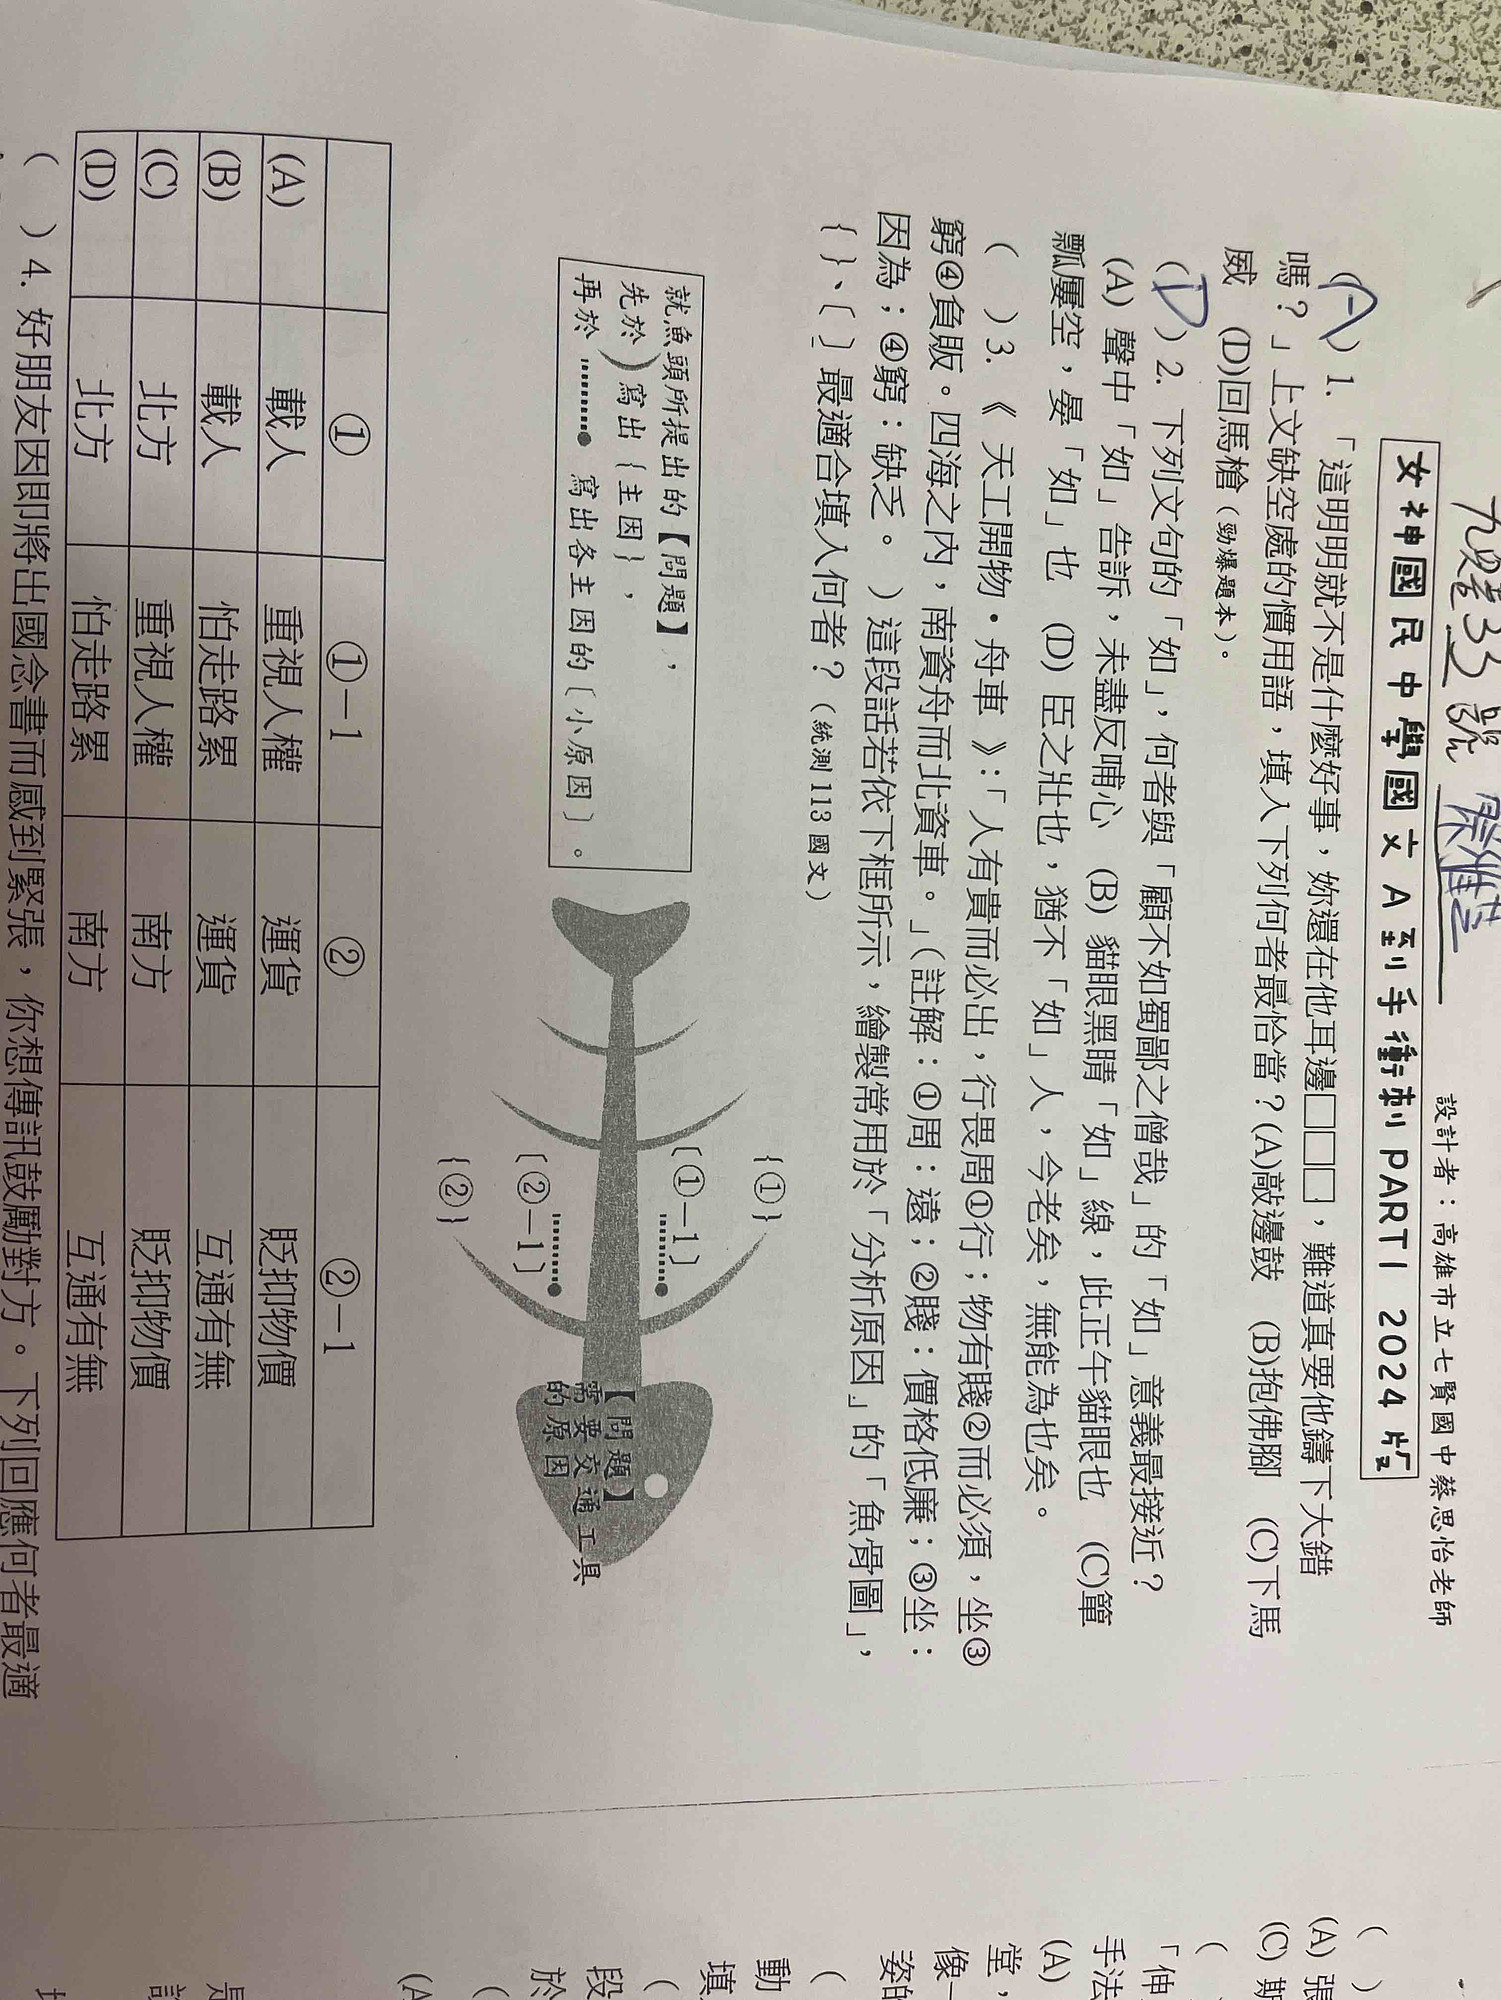 九 33 號
設計者：高雄市立七賢國中蔡思怡老師
女神國民中學國文A到手衝刺PART1 2024版
(A)1. 「這明明就不是什麼好事，妳還在他耳邊□□□，難道真要他鑄下大錯
嗎？」上文缺空處的慣用語，填入下列何者最恰當？(A)敲邊鼓 (B)抱佛腳 (C)下馬
威 (D)回馬槍（勁爆題本）。
(D)2. 下列文句的「如」，何者與「顧不如蜀鄙之僧哉」的「如」意義最接近？
(A) 聲中「如」告訴，未盡反哺心 (B) 貓眼黑睛「如」線，此正午貓眼也 (C)簞
瓢屢空，晏「如」也 (D) 臣之壯也，猶不「如」人，今老矣，無能為也矣。
( )3.《 天工開物·舟車 》：「人有貴而必出，行畏周①行；物有賤②而必須，坐③
窮④負販。四海之內，南資舟而北資車。」（註解：①周：遠；②賤：價格低廉；③坐：
因為；④窮：缺乏。 ）這段話若依下框所示，繪製常用於「分析原因」的「魚骨圖」，
{ }、〔 〕最適合填入何者？（統測113國文）
就魚頭所提出的【問題】，
先於 ) 寫出{主因}，
再於 ┈┈● 寫出各主因的〔小原因〕。
{①}
〔①－1〕
〔②－1〕
{②}
【問題】
需要交通工具
的原因
① ①－1 ② ②－1
(A) 載人 重視人權 運貨 貶抑物價
(B) 載人 怕走路累 運貨 互通有無
(C) 北方 重視人權 南方 貶抑物價
(D) 北方 怕走路累 南方 互通有無
( )4. 好朋友因即將出國念書而感到緊張，你想傳訊鼓勵對方。下列回應何者最適
( )
(A) 張
(C) 期
(
「伸
手法
(A)
堂，
像一
姿的
(
動
填
(
段
於
(
(A
是